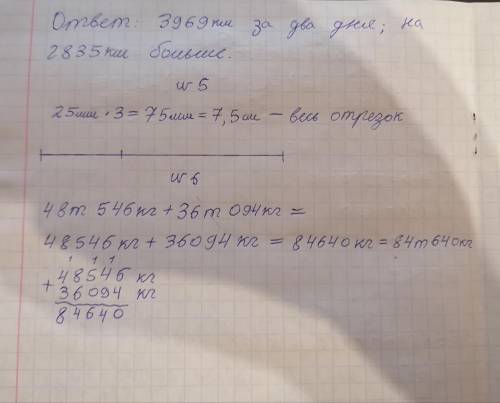 Ответ: 3969 км за два дня; на
2835 км больше.
№5
25мм · 3 = 75мм = 7,5см – весь отрезок
№6
48т 546кг + 36т 094кг =
48546 кг + 36094 кг = 84640кг = 84т640кг
1 1 1
+ 48546 кг
36094 кг
84640